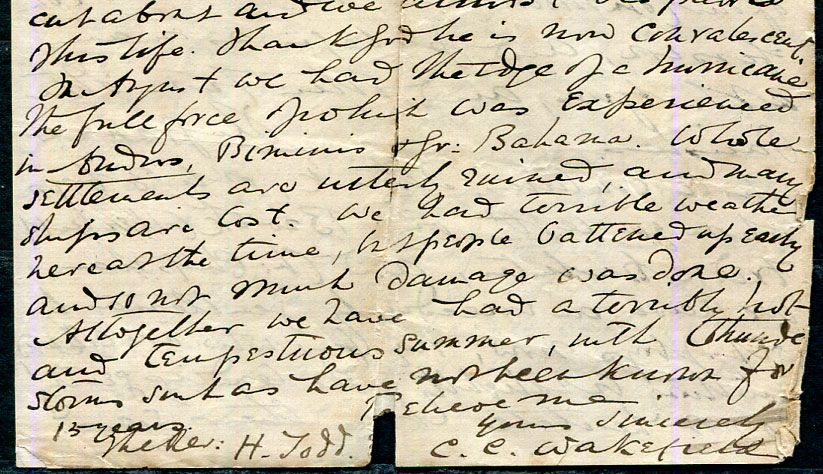 cut about and we
this life. Thank God he is now convalescent.
In August we had the edge of a hurricane
the full force of which was experienced
in Andros, Biminis & Gr: Bahama. Whole
settlements are utterly ruined, and many
ships are lost. We had terrible weather
here at the time, but people battened up early
and so not much damage was done.
Altogether we have had a terribly hot
and tempestuous summer, with thunder
storms such as have not been known for
15 years. Believe me
yours sincerely
The Rev: H. Todd. C. C. Wakefield